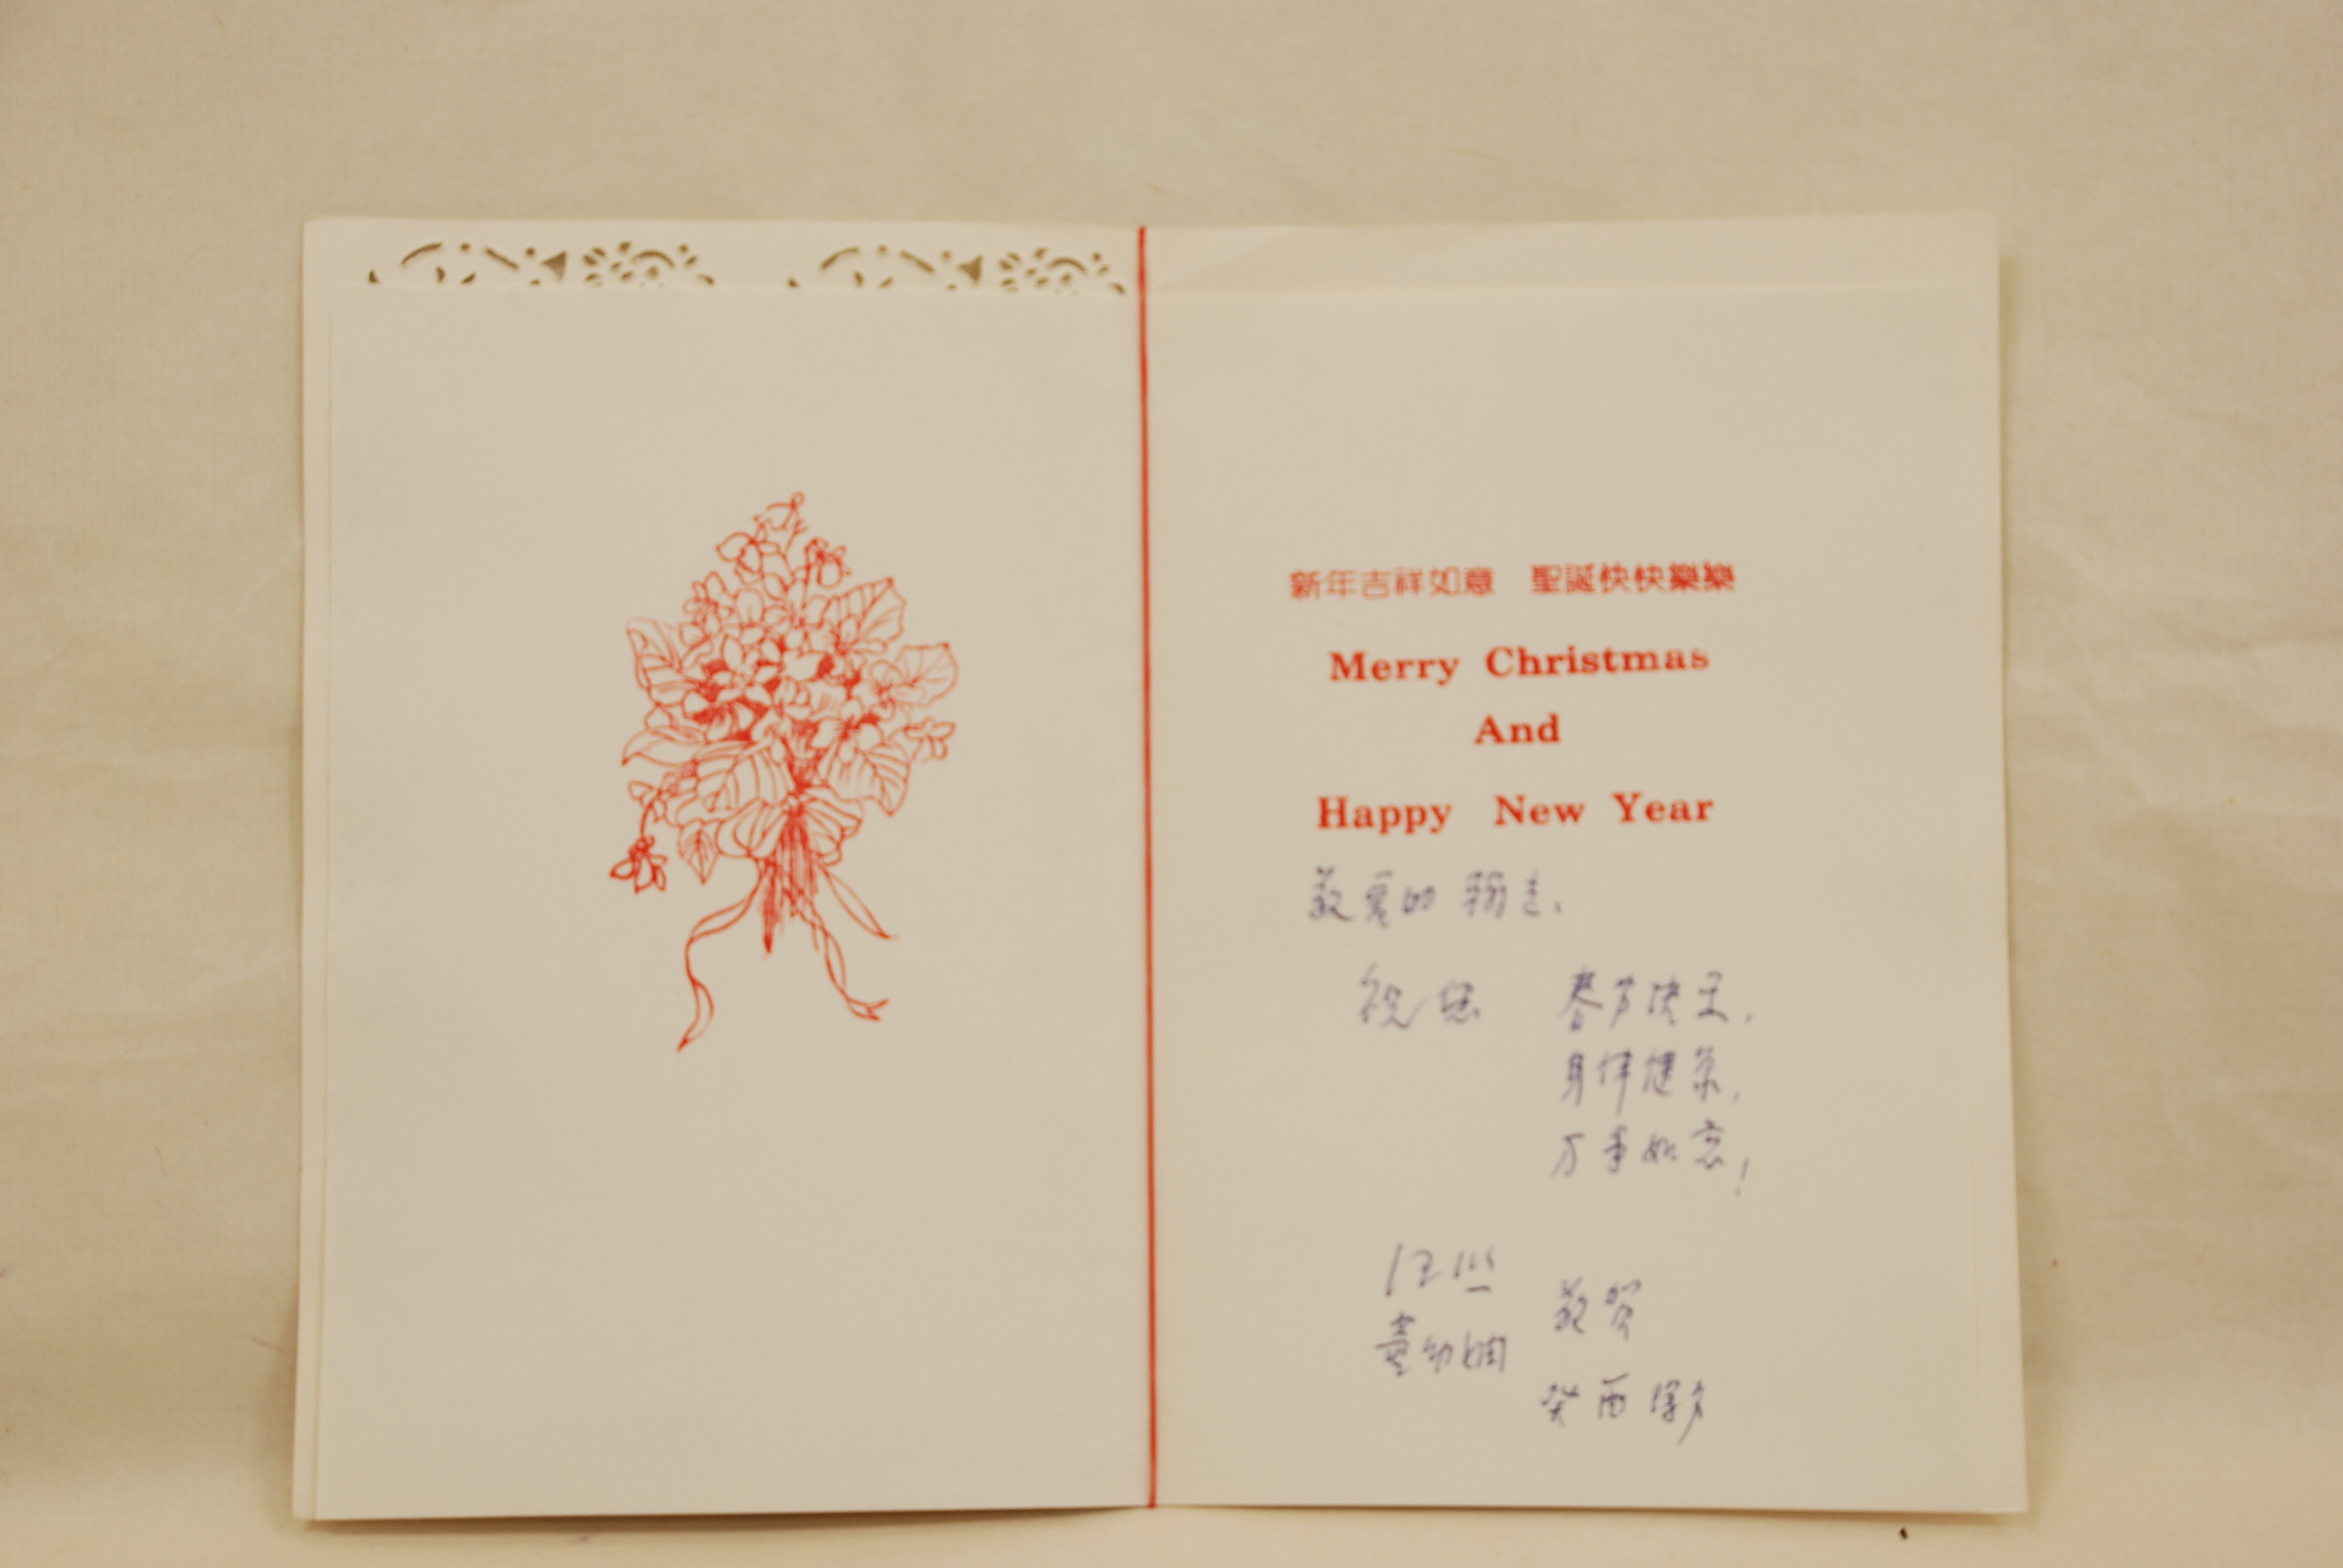 新年吉祥如意 聖誕快快樂樂
Merry Christmas
And
Happy New Year
敬爱的 翰老、
祝您 春节快乐,
身体健康,
万事如意!
敬贺
癸酉